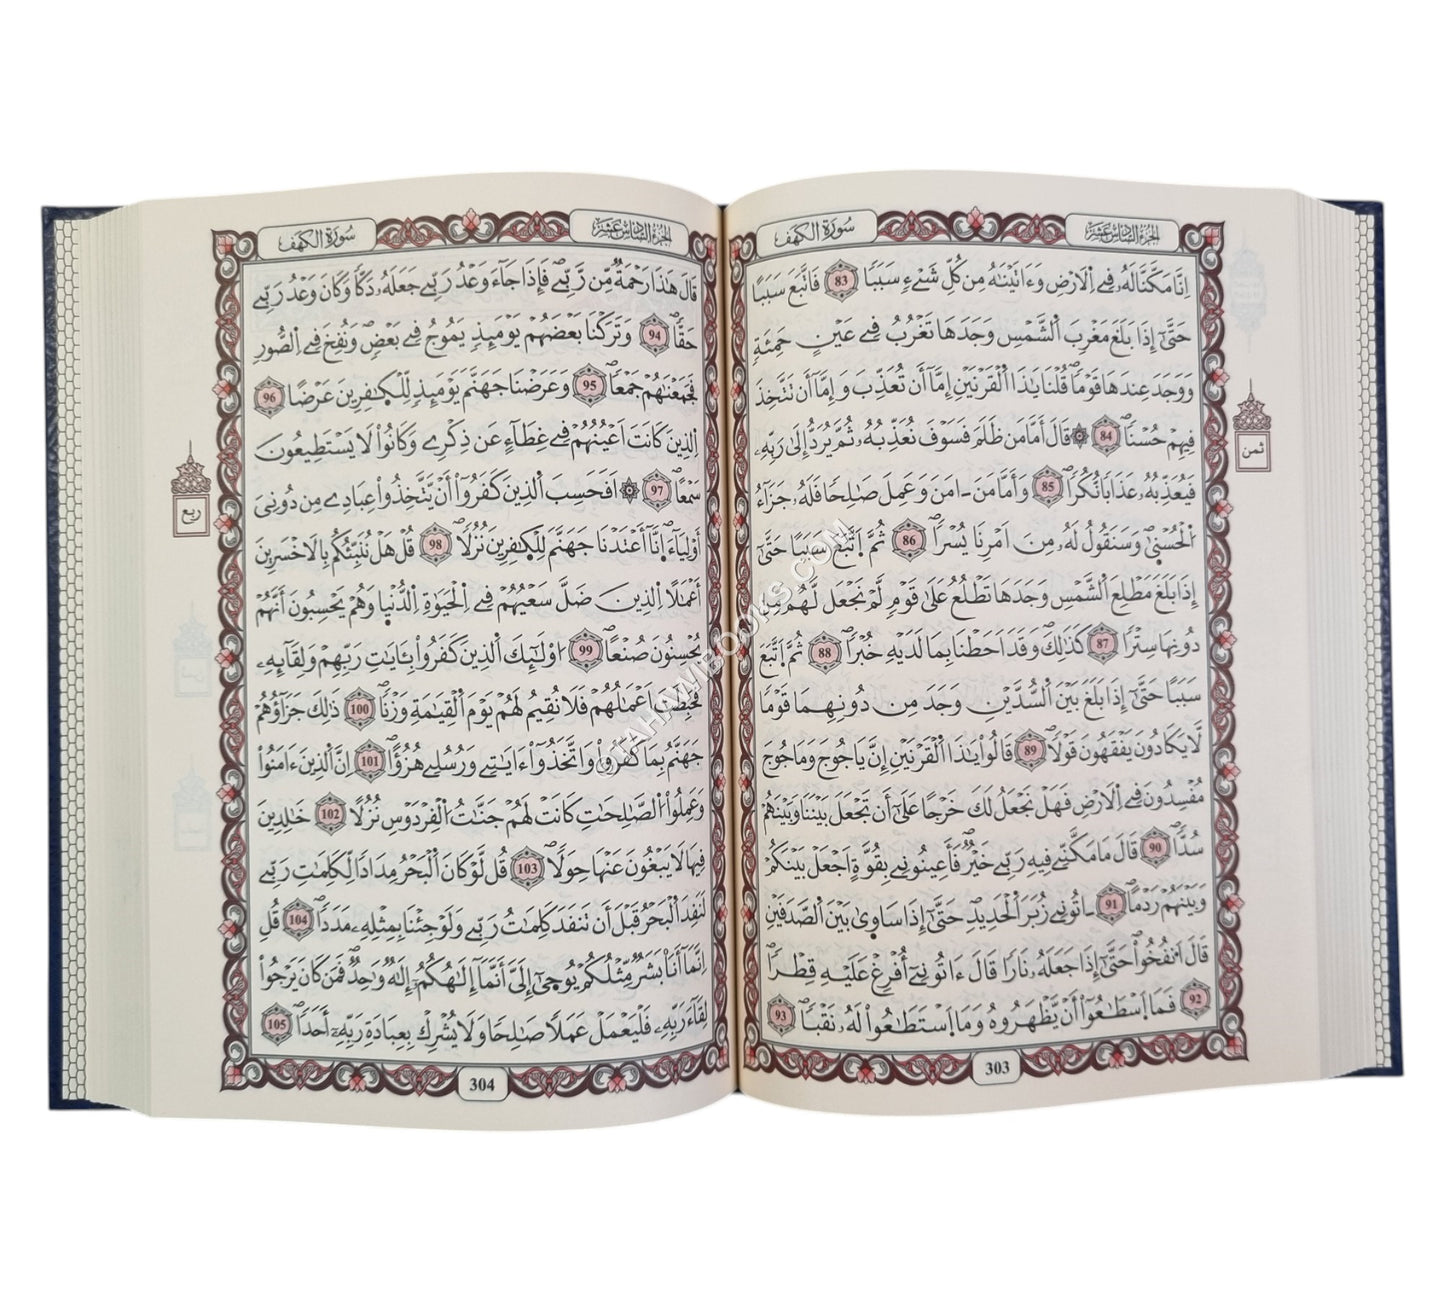 الجزء السادس عشر
سورة الكهف
إِنَّا مَكَّنَّا لَهُۥ فِے اِ۬لَارْضِ وَءَاتَيْنَٰهُ مِن كُلِّ شَےْءٖ سَبَباٗ 83 فَاتَّبَعَ سَبَباً
حَتَّىٰٓ إِذَا بَلَغَ مَغْرِبَ اَ۬لشَّمْسِ وَجَدَهَا تَغْرُبُ فِے عَيْنٍ حَمِئَةٖ
وَوَجَدَ عِندَهَا قَوْماٗۖ قُلْنَا يَٰذَا اَ۬لْقَرْنَيْنِ إِمَّآ أَن تُعَذِّبَ وَإِمَّآ أَن تَتَّخِذَ
فِيهِمْ حُسْناٗۖ 84 ۞ قَالَ أَمَّا مَن ظَلَمَ فَسَوْفَ نُعَذِّبُهُۥ ثُمَّ يُرَدُّ إِلَىٰ رَبِّهِۦ
فَيُعَذِّبُهُۥ عَذَاباٗ نُّكُراٗۖ 85 وَأَمَّا مَنَ اٰمَنَ وَعَمِلَ صَٰلِحاٗ فَلَهُۥ جَزَآءُ
اُ۬لْحُسْنَىٰۖ وَسَنَقُولُ لَهُۥ مِنَ اَمْرِنَا يُسْراٗۖ 86 ثُمَّ اَ۪تَّبَعَ سَبَباً حَتَّىٰٓ
إِذَا بَلَغَ مَطْلِعَ اَ۬لشَّمْسِ وَجَدَهَا تَطْلُعُ عَلَىٰ قَوْمٖ لَّمْ نَجْعَل لَّهُم مِّن
دُونِهَا سِتْراٗۖ 87 كَذَٰلِكَۖ وَقَدَ اَحَطْنَا بِمَا لَدَيْهِ خُبْراٗۖ 88 ثُمَّ اَ۪تَّبَعَ
سَبَباً حَتَّىٰٓ إِذَا بَلَغَ بَيْنَ اَ۬لسُّدَّيْنِ وَجَدَ مِن دُونِهِمَا قَوْماٗ
لَّا يَكَادُونَ يَفْقَهُونَ قَوْلاٗۖ 89 قَالُواْ يَٰذَا اَ۬لْقَرْنَيْنِ إِنَّ يَاجُوجَ وَمَاجُوجَ
مُفْسِدُونَ فِے اِ۬لَارْضِ فَهَلْ نَجْعَلُ لَكَ خَرْجاً عَلَىٰٓ أَن تَجْعَلَ بَيْنَنَا وَبَيْنَهُمْ
سُدّاٗۖ 90 قَالَ مَا مَكَّنِّے فِيهِ رَبِّے خَيْرٞۖ فَأَعِينُونِے بِقُوَّةٍ اَجْعَلْ بَيْنَكُمْ
وَبَيْنَهُمْ رَدْماًۖ 91 اٰتُونِے زُبَرَ اَ۬لْحَدِيدِۖ حَتَّىٰٓ إِذَا سَاوَىٰ بَيْنَ اَ۬لصَّدَفَيْنِ
قَالَ اَ۟نفُخُواْۖ حَتَّىٰٓ إِذَا جَعَلَهُۥ نَاراٗ قَالَ ءَاتُونِےٓ أُفْرِغْ عَلَيْهِ قِطْراٗۖ
92 فَمَا اَ۪سْطَٰعُوٓاْ أَنْ يَّظْهَرُوهُ وَمَا اَ۪سْتَطَٰعُواْ لَهُۥ نَقْباٗۖ 93
303
ثمن
الجزء السادس عشر
سورة الكهف
قَالَ هَٰذَا رَحْمَةٞ مِّن رَّبِّےۖ فَإِذَا جَآءَ وَعْدُ رَبِّے جَعَلَهُۥ دَكّاٗۖ وَكَانَ وَعْدُ رَبِّے
حَقّاٗۖ 94 وَتَرَكْنَا بَعْضَهُمْ يَوْمَئِذٖ يَمُوجُ فِے بَعْضٖۖ وَنُفِخَ فِے اِ۬لصُّورِ
فَجَمَعْنَٰهُمْ جَمْعاٗۖ 95 وَعَرَضْنَا جَهَنَّمَ يَوْمَئِذٖ لِّلْكٰ۪فِرِينَ عَرْضاً 96
اِ۬لذِينَ كَانَتَ اَعْيُنُهُمْ فِے غِطَآءٍ عَن ذِكْرِے وَكَانُواْ لَا يَسْتَطِيعُونَ
سَمْعاًۖ 97 ۞ اَفَحَسِبَ اَ۬لذِينَ كَفَرُوٓاْ أَنْ يَّتَّخِذُواْ عِبَادِے مِن دُونِيَ
أَوْلِيَآءَۖ اِنَّآ أَعْتَدْنَا جَهَنَّمَ لِلْكٰ۪فِرِينَ نُزُلاٗۖ 98 قُلْ هَلْ نُنَبِّئُكُم بِالَاخْسَرِينَ
أَعْمَٰلاً اِ۬لذِينَ ضَلَّ سَعْيُهُمْ فِے اِ۬لْحَيَوٰةِ اِ۬لدُّنْي۪ا وَهُمْ يَحْسِبُونَ أَنَّهُمْ
يُحْسِنُونَ صُنْعاًۖ 99 اُوْلَٰٓئِكَ اَ۬لذِينَ كَفَرُواْ بِـَٔايَٰتِ رَبِّهِمْ وَلِقَآئِهِۦ
فَحَبِطَتَ اَعْمَٰلُهُمْ فَلَا نُقِيمُ لَهُمْ يَوْمَ اَ۬لْقِيَٰمَةِ وَزْناٗۖ 100 ذَٰلِكَ جَزَآؤُهُمْ
جَهَنَّمُ بِمَا كَفَرُواْ وَاتَّخَذُوٓاْ ءَايَٰتِے وَرُسُلِے هُزُؤاًۖ 101 اِنَّ اَ۬لذِينَ ءَامَنُواْ
وَعَمِلُواْ اُ۬لصَّٰلِحَٰتِ كَانَتْ لَهُمْ جَنَّٰتُ اُ۬لْفِرْدَوْسِ نُزُلاً 102 خَٰلِدِينَ
فِيهَا لَا يَبْغُونَ عَنْهَا حِوَلاٗۖ 103 قُل لَّوْ كَانَ اَ۬لْبَحْرُ مِدَاداٗ لِّكَلِمَٰتِ رَبِّے
لَنَفِدَ اَ۬لْبَحْرُ قَبْلَ أَن تَنفَدَ كَلِمَٰتُ رَبِّے وَلَوْ جِئْنَا بِمِثْلِهِۦ مَدَداٗۖ 104 قُلِ
اِنَّمَآ أَنَا بَشَرٞ مِّثْلُكُمْ يُوحَىٰٓ إِلَيَّ أَنَّمَآ إِلَٰهُكُمُۥٓ إِلَٰهٞ وَٰحِدٞۖ فَمَن كَانَ يَرْجُواْ
لِقَآءَ رَبِّهِۦ فَلْيَعْمَلْ عَمَلاٗ صَٰلِحاٗ وَلَا يُشْرِكْ بِعِبَادَةِ رَبِّهِۦٓ أَحَداٗۖ 105
304
ربع
©TAHAWIBOOKS.COM